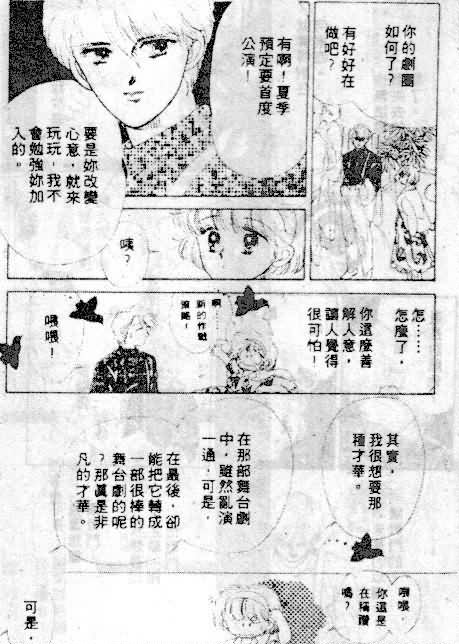 你的劇團
如何了？
有好好在
做吧？
有啊！夏季
預定要首度
公演！
要是妳改變
心意，就來
玩玩，我不
會勉強妳加
入的。
咦？
怎……
怎麼了，
你這麼善
解人意，
讓人覺得
很可怕！
啊……
新的作戰
策略！
喂喂！
其實，
我很想要那
種才華。
在那部舞台劇
中，雖然亂演
一通，可是，
在最後，卻
能把它轉成
一部很棒的
舞台劇的呢
？那真是非
凡的才華。
你這是
在稱讚
嗎？
可是，